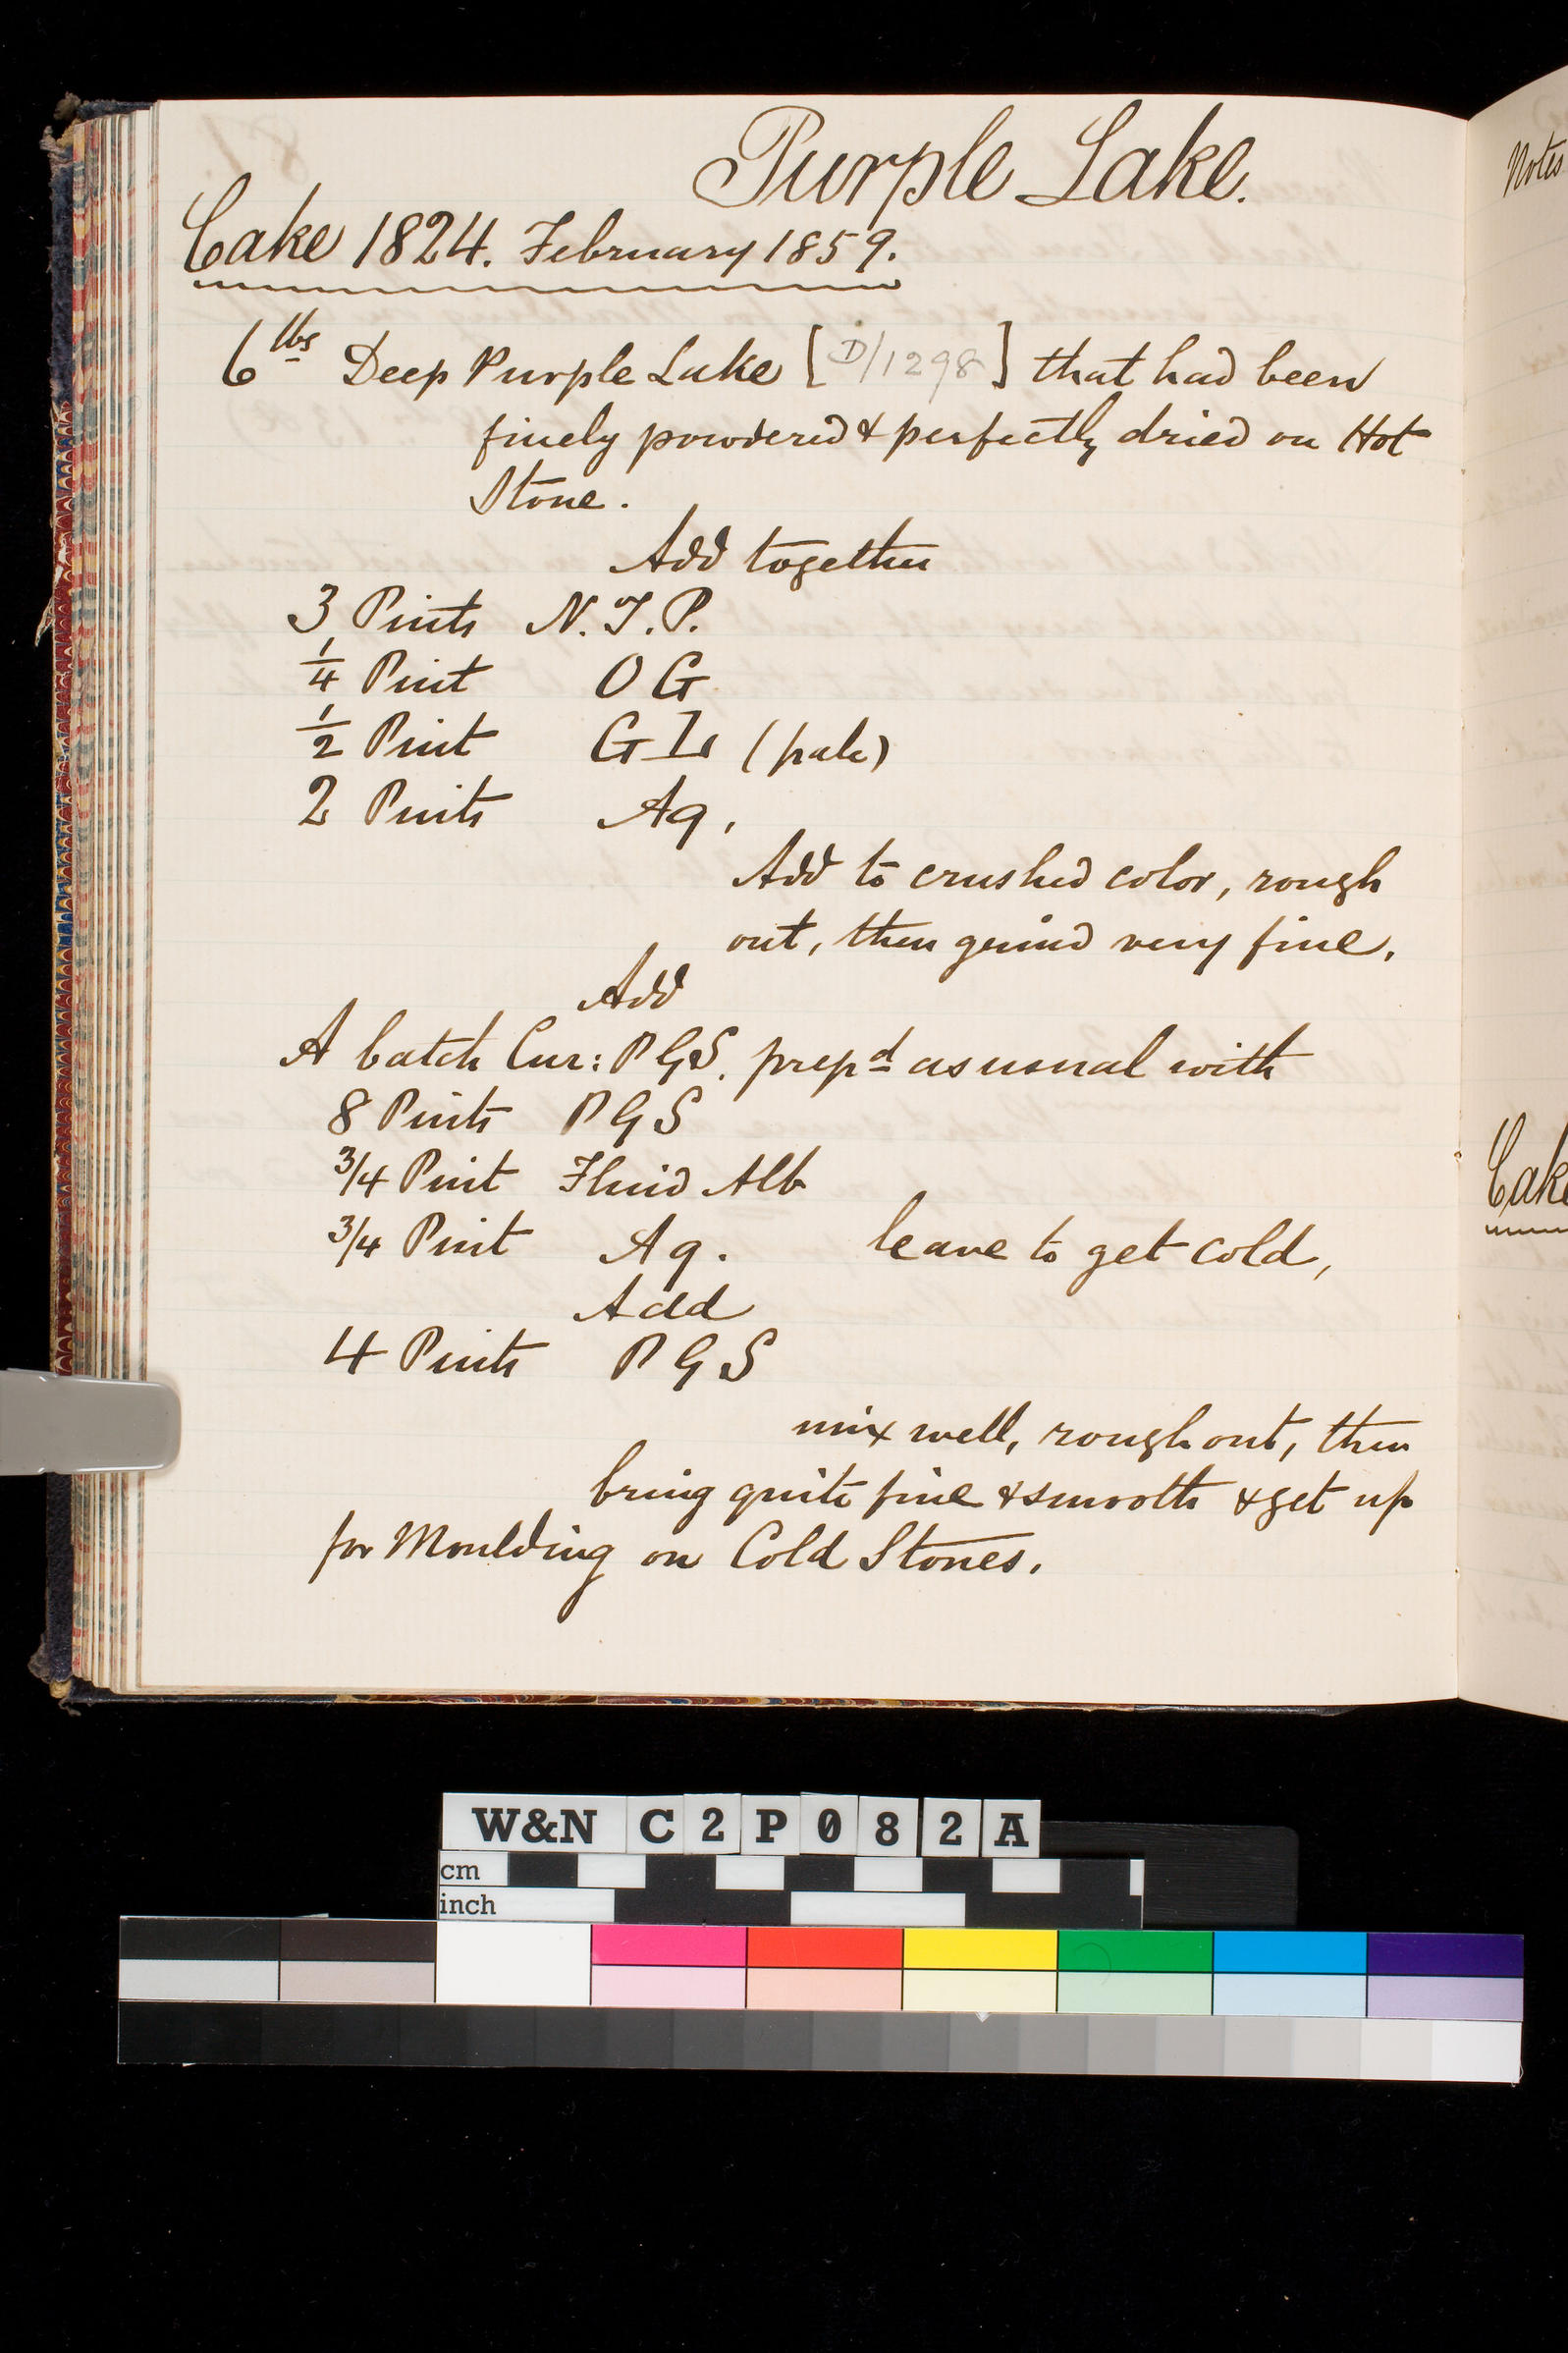 Purple Lake.
Cake 1824. February 1859.
6 lbs Deep Purple Lake [D/1298] that had been
finely powdered & perfectly dried on Hot
Stone.
Add together
3 Pints N.T.P.
1/4 Pint OG
1/2 Pint GL (pale)
2 Pints Aq.
Add to crushed color, rough
out, then grind very fine.
Add
A batch Cur: PGS. prepd as usual with
8 Pints PGS
3/4 Pint Fluid Alb
3/4 Pint Aq. leave to get cold,
Add
4 Pints PGS
mix well, rough out, then
bring quite fine & smooth & get up
for Moulding on Cold Stones.
Notes
W&N C2P082A
cm
inch